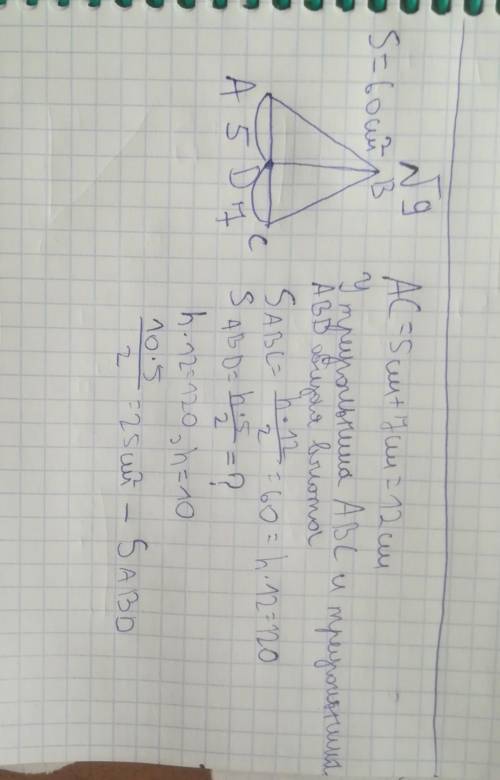 √9
S = 60 см²
B
A 5 D 7 C
AC = 5 см + 7 см = 12 см
У треугольника ABC и треугольника
ABD общая высота
S ABC = h·12/2 = 60 = h·12 = 120
S ABD = h·5/2 = ?
h·12 = 120, h = 10
10·5/2 = 25 см² – S ABD